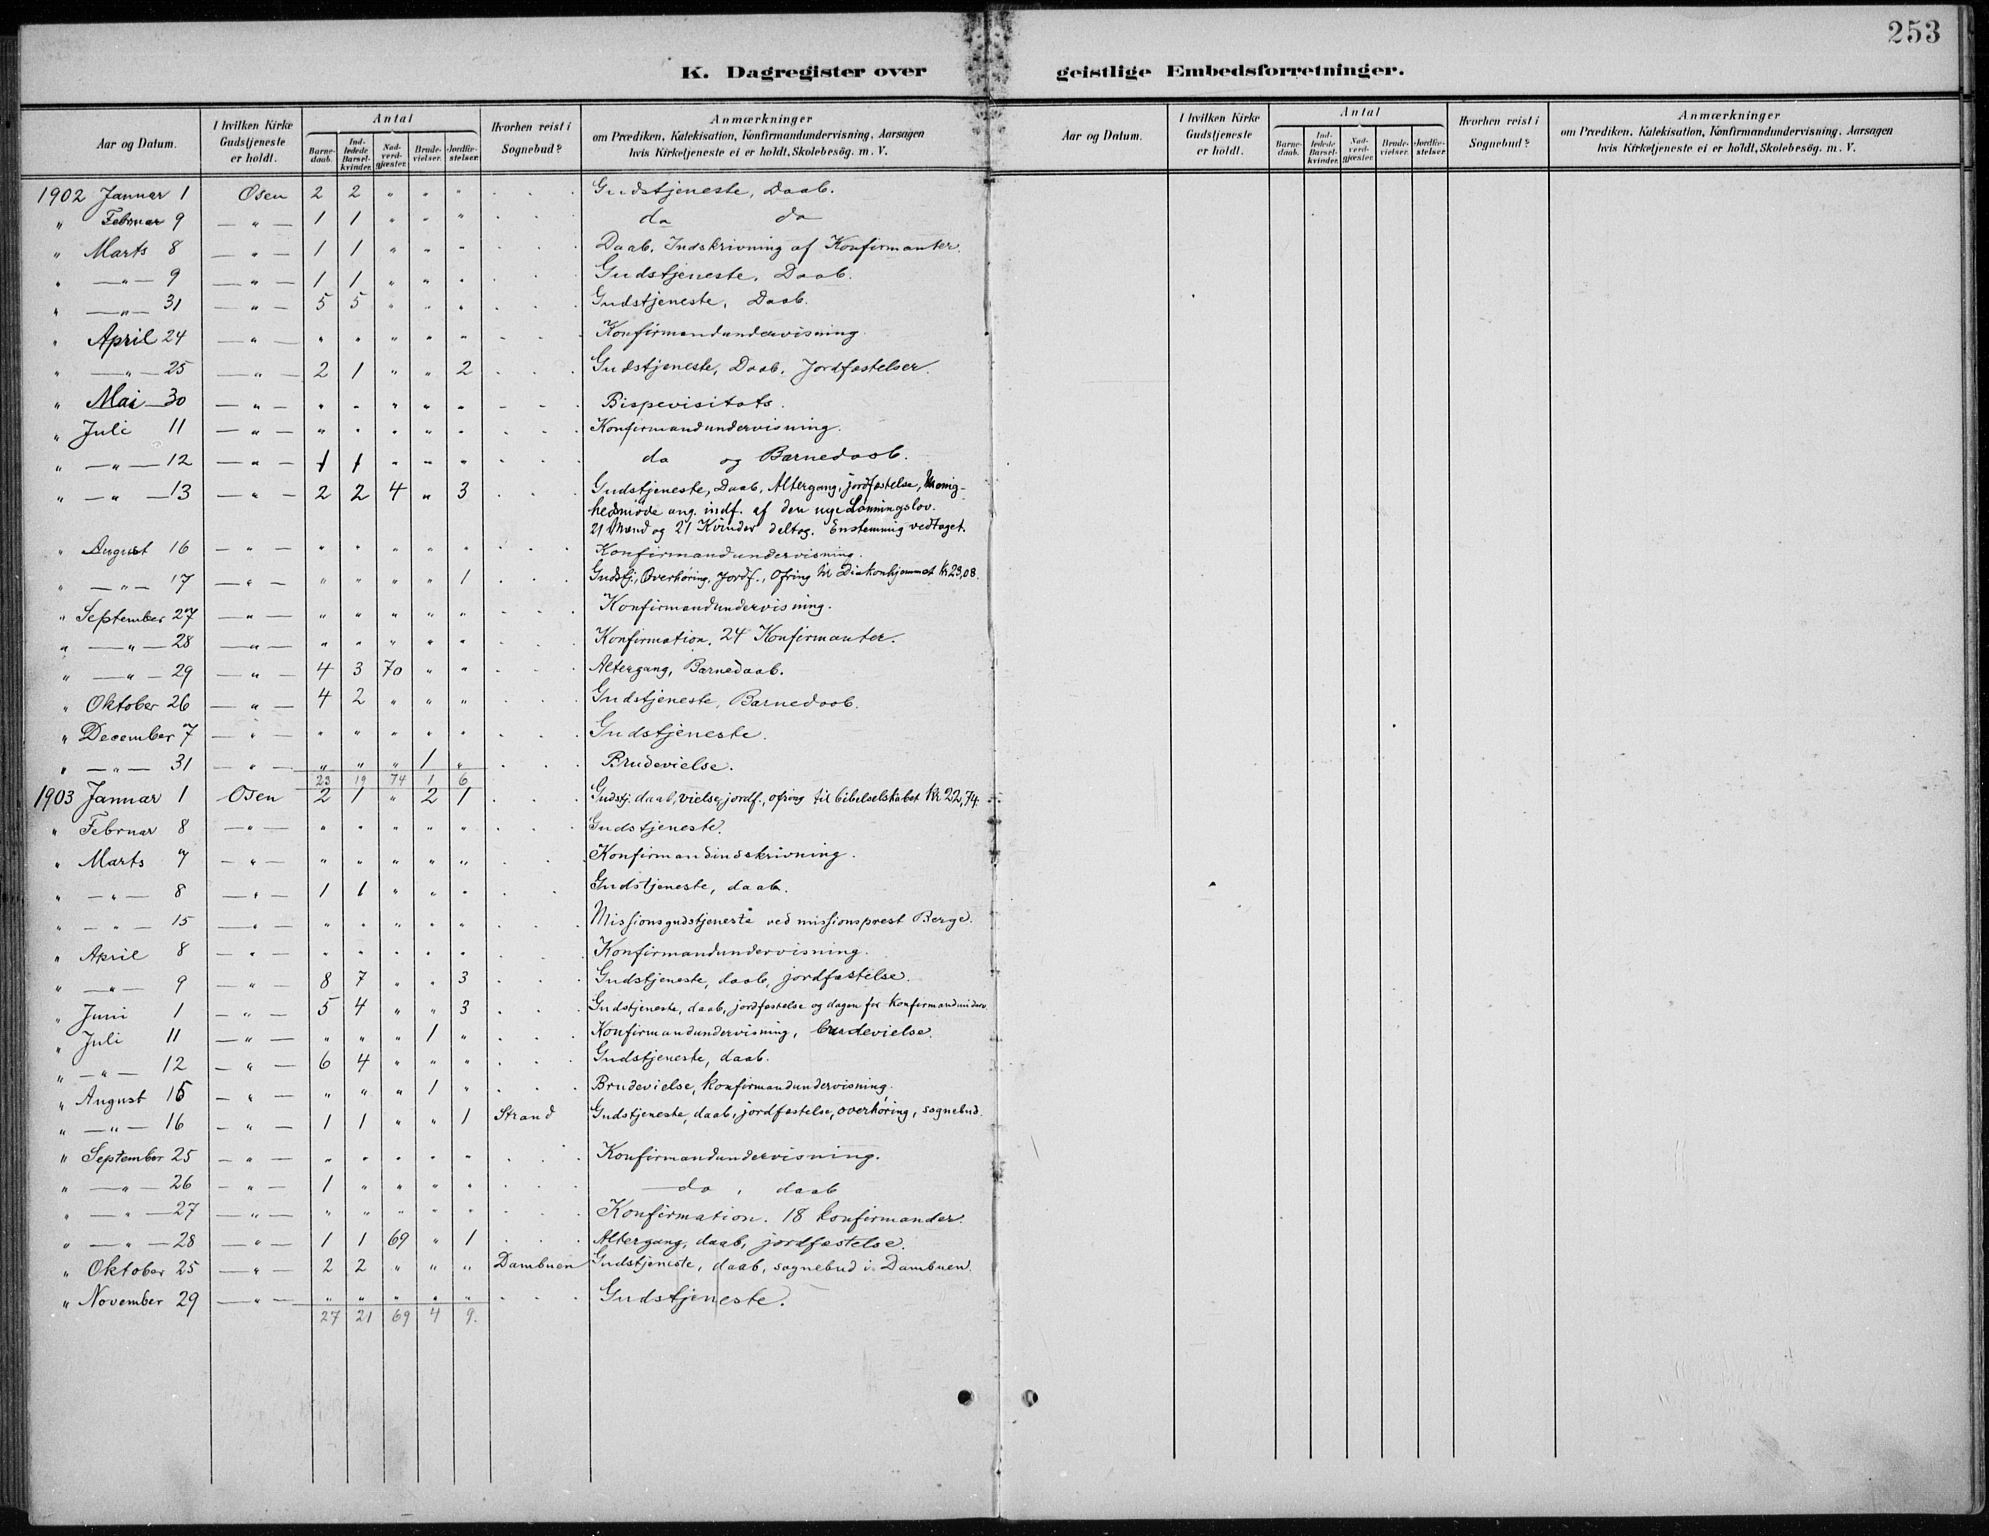 253
K. Dagregister over geistlige Embedsforretninger.
Aar og Datum. I hvilken Kirke Gudstjeneste er holdt. Antal Barnedaab. Indledede Barselkvinder. Nadverdgjæster. Brudevielser. Jordfæstelser. Hvorhen reist i Sognebud? Anmærkninger om Prædiken, Katekisation, Konfirmandundervisning, Aarsagen hvis Kirketjeneste ei er holdt, Skolebesøg. m. V.
Aar og Datum. I hvilken Kirke Gudstjeneste er holdt. Antal Barnedaab. Indledede Barselkvinder. Nadverdgjæster. Brudevielser. Jordfæstelser. Hvorhen reist i Sognebud? Anmærkninger om Prædiken, Katekisation, Konfirmandundervisning, Aarsagen hvis Kirketjeneste ei er holdt, Skolebesøg. m. V.
1902 Januar 1 Osen 2 2 " " " . . . Gudstjeneste, Daab.
" Februar 9 — " — 1 1 " " " . . . do do
" Marts 8 — " — 1 1 " " " . . . Daab. Indskrivning af Konfirmanter.
" — " — 9 — " — 1 1 " " " . . . Gudstjeneste, Daab.
" — " — 31 — " — 5 5 " " " . . . Gudstjeneste, Daab.
" April 24 — " — " " " " " . . . Konfirmandundervisning.
" — " — 25 — " — 2 1 " " 2 . . . Gudstjeneste, Daab, Jordfæstelser.
" Mai 30 — " — " " " " " . . . Bispevisitats.
" Juli 11 — " — " " " " " . . . Konfirmandundervisning.
" — " — 12 — " — 1 1 " " " . . . do og Barnedaab.
" — " — 13 — " — 2 2 4 " 3 . . . Gudstjeneste, Daab, Altergang, jordfæstelse, Menig-
hedsmöde ang. indf. af den nye Lønningslov.
21 Mænd og 21 Kvinder deltog. Enstemmig vedtaget.
" August 16 — " — " " " " " . . . Konfirmandundervisning.
" — " — 17 — " — " " " " 1 . . . Gudstj., Overhøring, Jordf., Ofring til Diakonhjemmet Kr 23,08.
" September 27 — " — " " " " " . . . Konfirmandundervisning.
" — " — 28 — " — " " " " " . . . Konfirmation. 24 Konfirmanter.
" — " — 29 — " — 4 3 70 " " . . . Altergang, Barnedaab.
" Oktober 26 — " — 4 2 " " " . . . Gudstjeneste, Barnedaab.
" December 7 — " — " " " " " . . . Gudstjeneste.
" — " — 31 — " — " " " 1 " . . . Brudevielse.
23 19 74 1 6
1903 Januar 1 Osen 2 1 " 2 1 . . . Gudstj. daab, vielse, jordf., ofring til bibelselskabet Kr 22,74.
" Februar 8 — " — " " " " " . . . Gudstjeneste.
" Marts 7 — " — " " " " " . . . Konfirmandindskrivning.
" — " — 8 — " — 1 1 " " " . . . Gudstjeneste, daab.
" — " — 15 — " — " " " " " . . . Missionsgudstjeneste ved missionsprest Berge.
" April 8 — " — " " " " " . . . Konfirmandundervisning.
" — " — 9 — " — 8 7 " " 3 . . . Gudstjeneste, daab, jordfæstelse.
" Juni 1 — " — 5 4 " " 3 . . . Gudstjeneste, daab, jordfæstelse og dagen før Konfirmandunderv.
" Juli 11 — " — " " " 1 " . . . Konfirmandundervisning, brudevielse.
" — " — 12 — " — 6 4 " " " . . . Gudstjeneste, daab.
" August 15 — " — " " " 1 " . . . Brudevielse, konfirmandundervisning.
" — " — 16 — " — 1 1 " " 1 Strand Gudstjeneste, daab, jordfæstelse, overhøring, sognebud.
" September 25 — " — " " " " " . . . Konfirmandundervisning.
" — " — 26 — " — 1 " " " " . . . — do, daab
" — " — 27 — " — " " " " " . . . Konfirmation. 18 konfirmander.
" — " — 28 — " — 1 1 69 " 1 . . . Altergang, daab, jordfæstelse.
" Oktober 25 — " — 2 2 " " " Dambuen Gudstjeneste, daab, sognebud i Dambuen.
" November 29 — " — " " " " " . . . Gudstjeneste.
27 21 69 4 9.